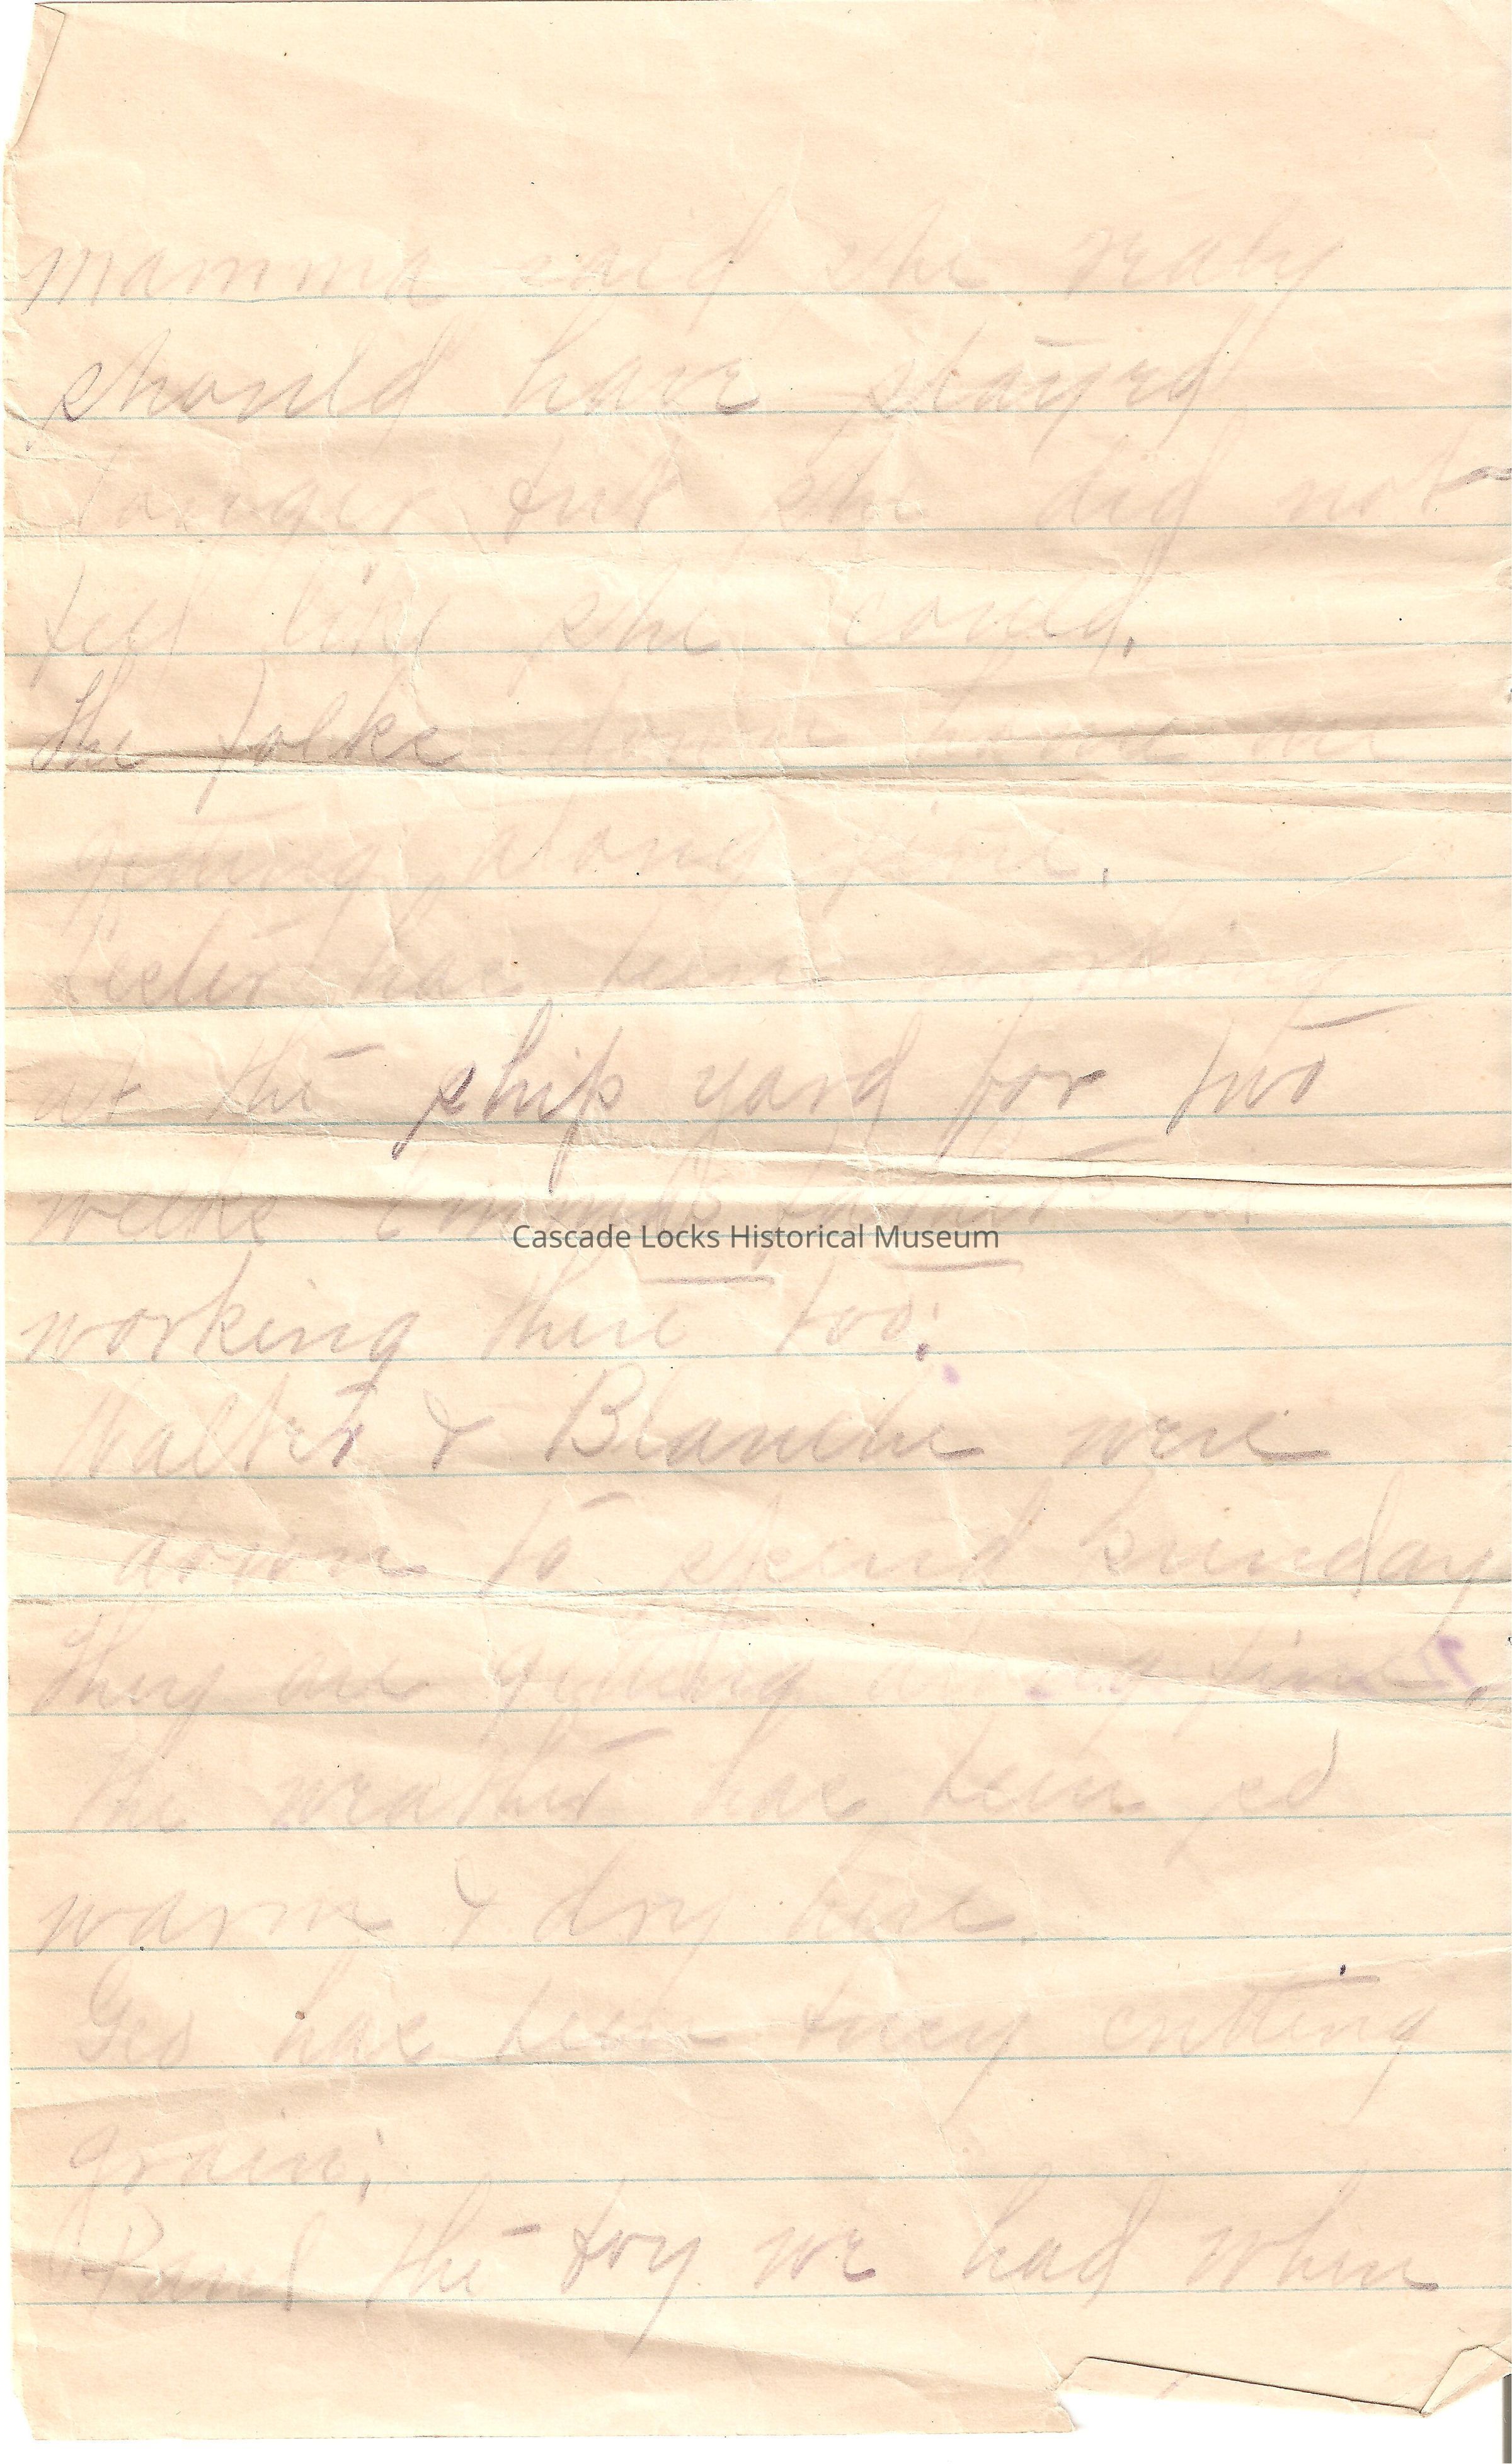 mamma said she realy
should have stayed
longer but she did not
feel like she could.
the folks down home are
getting along fine.
Lester has been working
at the ship yard for two
weeks
Cascade Locks Historical Museum
working there too.
Walter & Blanche were
down to spend Sunday
They are getting along fine.
the weather has been so
warm & dry here.
Geo has been busy cutting
grain.
Paul the boy we had when